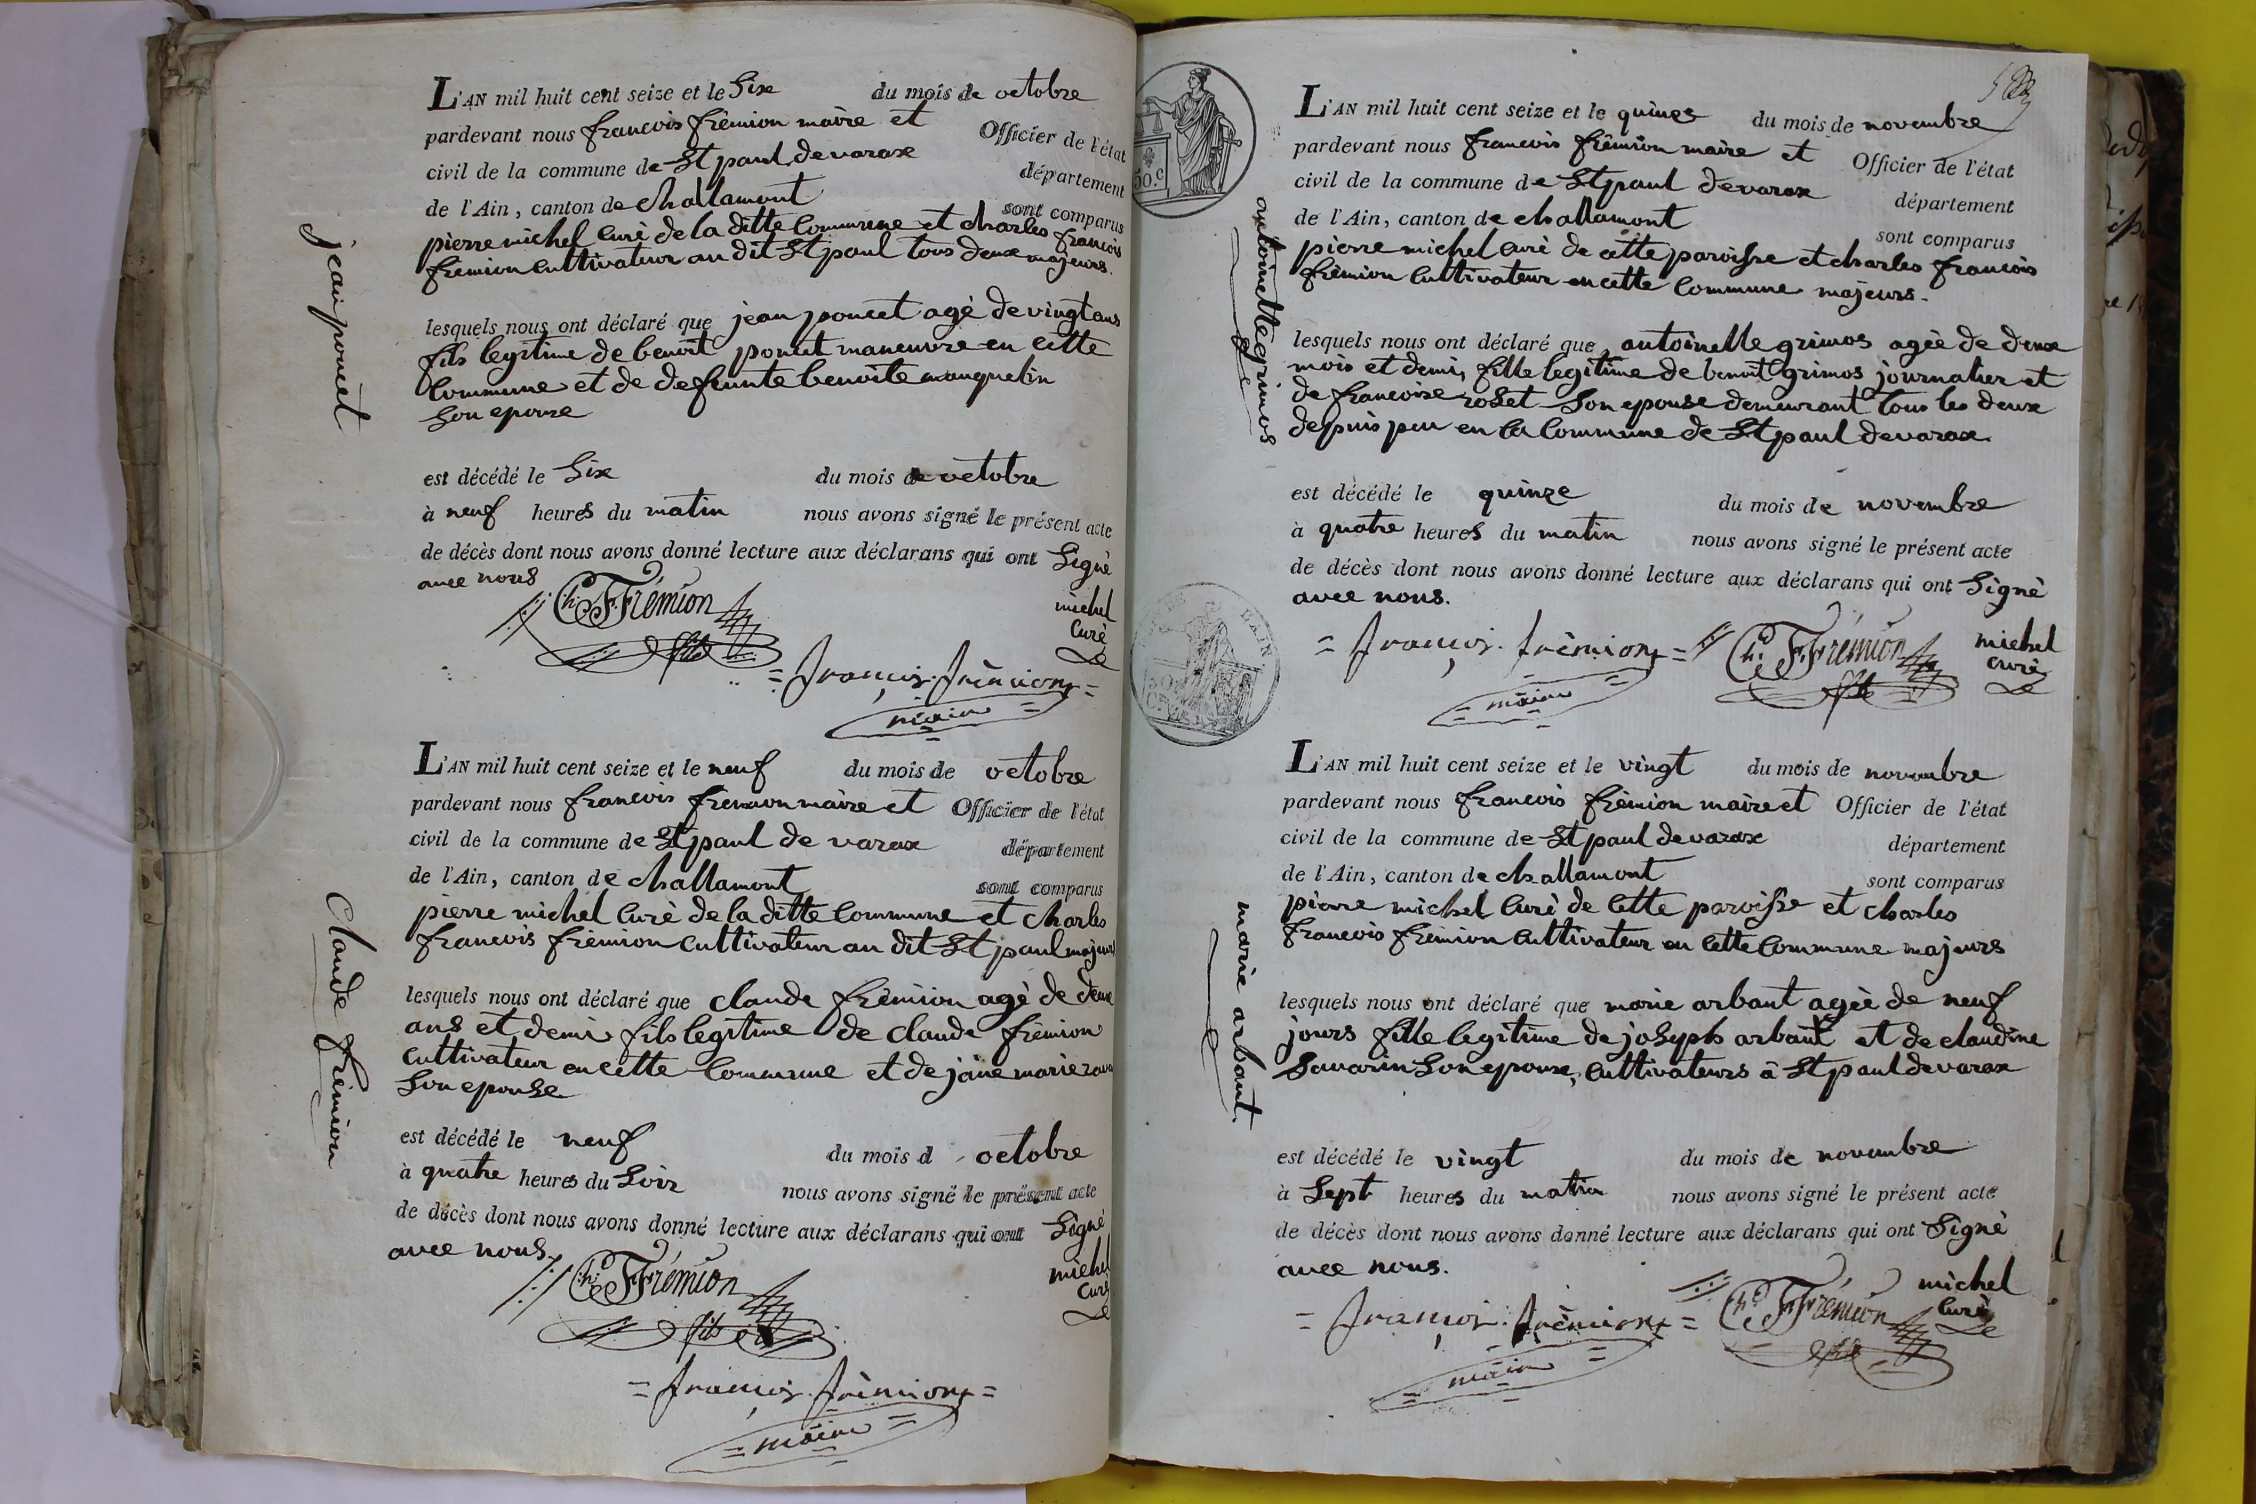 L'AN mil huit cent seize et le Six du mois de octobre
pardevant nous francois frèmion màire et Officier de l'état
civil de la commune de St paul de varax département
de l'Ain, canton de challamont sont comparus
pierre michel Curè de la ditte Commune et charles francois
frèmion Cultivateur au dit St paul tous deux majeurs.
lesquels nous ont déclaré que jean poncet agè de vingt ans
fils legitime de benoit poncet maneuvre en cette
Commune et de deffeunte benoite manquelin
Son epouse
est décédé le Six du mois de octobre
à neuf heures du matin nous avons signé le présent acte
de décès dont nous avons donné lecture aux déclarans qui ont Signè
avec nous
Ch. F. Frémion fils
michel
Curè
françois frèmion
màire
jean poncet
L'AN mil huit cent seize et le neuf du mois de octobre
pardevant nous francois frèmion màire et Officier de l'état
civil de la commune de St paul de varax département
de l'Ain, canton de challamont sont comparus
pierre michel Curè de la ditte Commune et charles
francois frèmion Cultivateur au dit St paul majeurs
lesquels nous ont déclaré que claude frèmion agè de deux
ans et demi fils legitime de claude frèmion
Cultivateur en cette Commune et de jàne marie
Son epouse
est décédé le neuf du mois d octobre
à quatre heures du Soir nous avons signé le présent acte
de décès dont nous avons donné lecture aux déclarans qui ont Signè
avec nous.
Ch. F. Frémion fils
michel
Curè
françois frèmion
màire
Claude frèmion
50.c
L'AN mil huit cent seize et le quinze du mois de novembre
pardevant nous francois frèmion maire et Officier de l'état
civil de la commune de St paul de varax département
de l'Ain, canton de challamont sont comparus
pierre michel Curè de cette paroisse et charles francois
frèmion Cultivateur en cette Commune majeurs.
lesquels nous ont déclaré que antoinette grimos agèe de deux
mois et demi, fille legitime de benoit grimos journalier et
de francoise roset Son epouse demeurant tous les deux
depuis peu en la Commune de St paul de varax.
est décédé le quinze du mois de novembre
à quatre heures du matin nous avons signé le présent acte
de décès dont nous avons donné lecture aux déclarans qui ont Signè
avec nous.
françois frèmion
màire
Ch. F. Frémion fils
michel
Curè
antoinette grimos
L'AN mil huit cent seize et le vingt du mois de novembre
pardevant nous francois frèmion màire et Officier de l'état
civil de la commune de St paul de varax département
de l'Ain, canton de challamont sont comparus
pierre michel Curè de Cette paroisse et charles
francois frèmion Cultivateur en Cette Commune majeurs
lesquels nous ont déclaré que marie arbant agèe de neuf
jours fille legitime de joSeph arbant et de claudine
Savarin Son epouse, Cultivateurs à St paul de varax
est décédé le vingt du mois de novembre
à Sept heures du matin nous avons signé le présent acte
de décès dont nous avons donné lecture aux déclarans qui ont Signè
avec nous.
françois frèmion
màire
Ch. F. Frémion fils
michel
Curè
marie arbant.